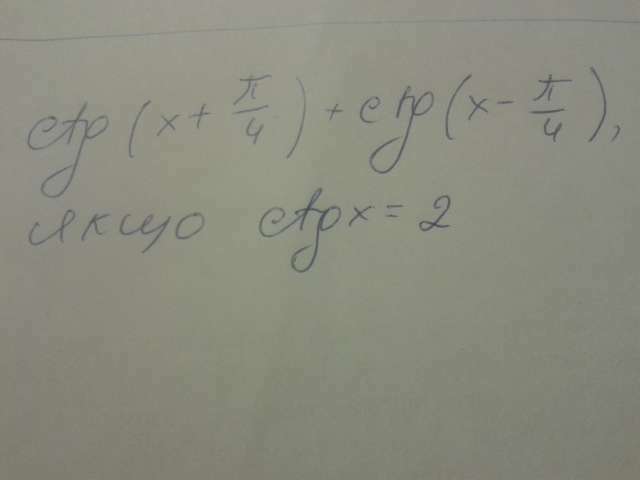 ctg(x + π/4) + ctg(x - π/4),
якщо ctgx = 2